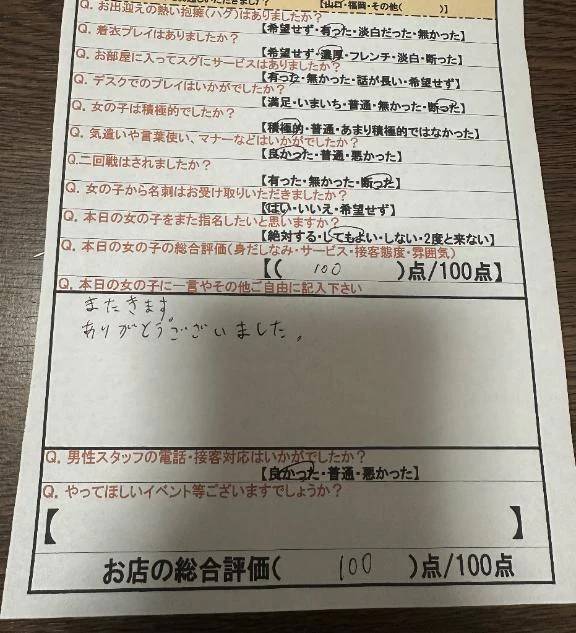 【山口・福岡・その他(　　　)】
Q. お出迎えの熱い抱擁(ハグ)はありましたか?
【希望せず・有った・淡白だった・無かった】
Q. 着衣プレイはありましたか?
【希望せず・濃厚・フレンチ・淡白・断った】
Q. お部屋に入ってスグにサービスはありましたか?
【有った・無かった・話が長い・希望せず】
Q. デスクでのプレイはいかがでしたか?
【満足・いまいち・普通・無かった・断った】
Q. 女の子は積極的でしたか?
【積極的・普通・あまり積極的ではなかった】
Q. 気遣いや言葉使い、マナーなどはいかがでしたか?
【良かった・普通・悪かった】
Q.二回戦はされましたか?
【有った・無かった・断った】
Q. 女の子から名刺はお受け取りいただきましたか?
【はい・いいえ・希望せず】
Q. 本日の女の子をまた指名したいと思いますか?
【絶対する・してもよい・しない・2度と来ない】
Q. 本日の女の子の総合評価(身だしなみ・サービス・接客態度・雰囲気)
【( 100 )点/100点】
Q. 本日の女の子に一言やその他ご自由に記入下さい
またきます。
ありがとうございました。
Q. 男性スタッフの電話・接客対応はいかがでしたか?
【良かった・普通・悪かった】
Q. やってほしいイベント等ございますでしょうか?
【　】
お店の総合評価( 100 )点/100点